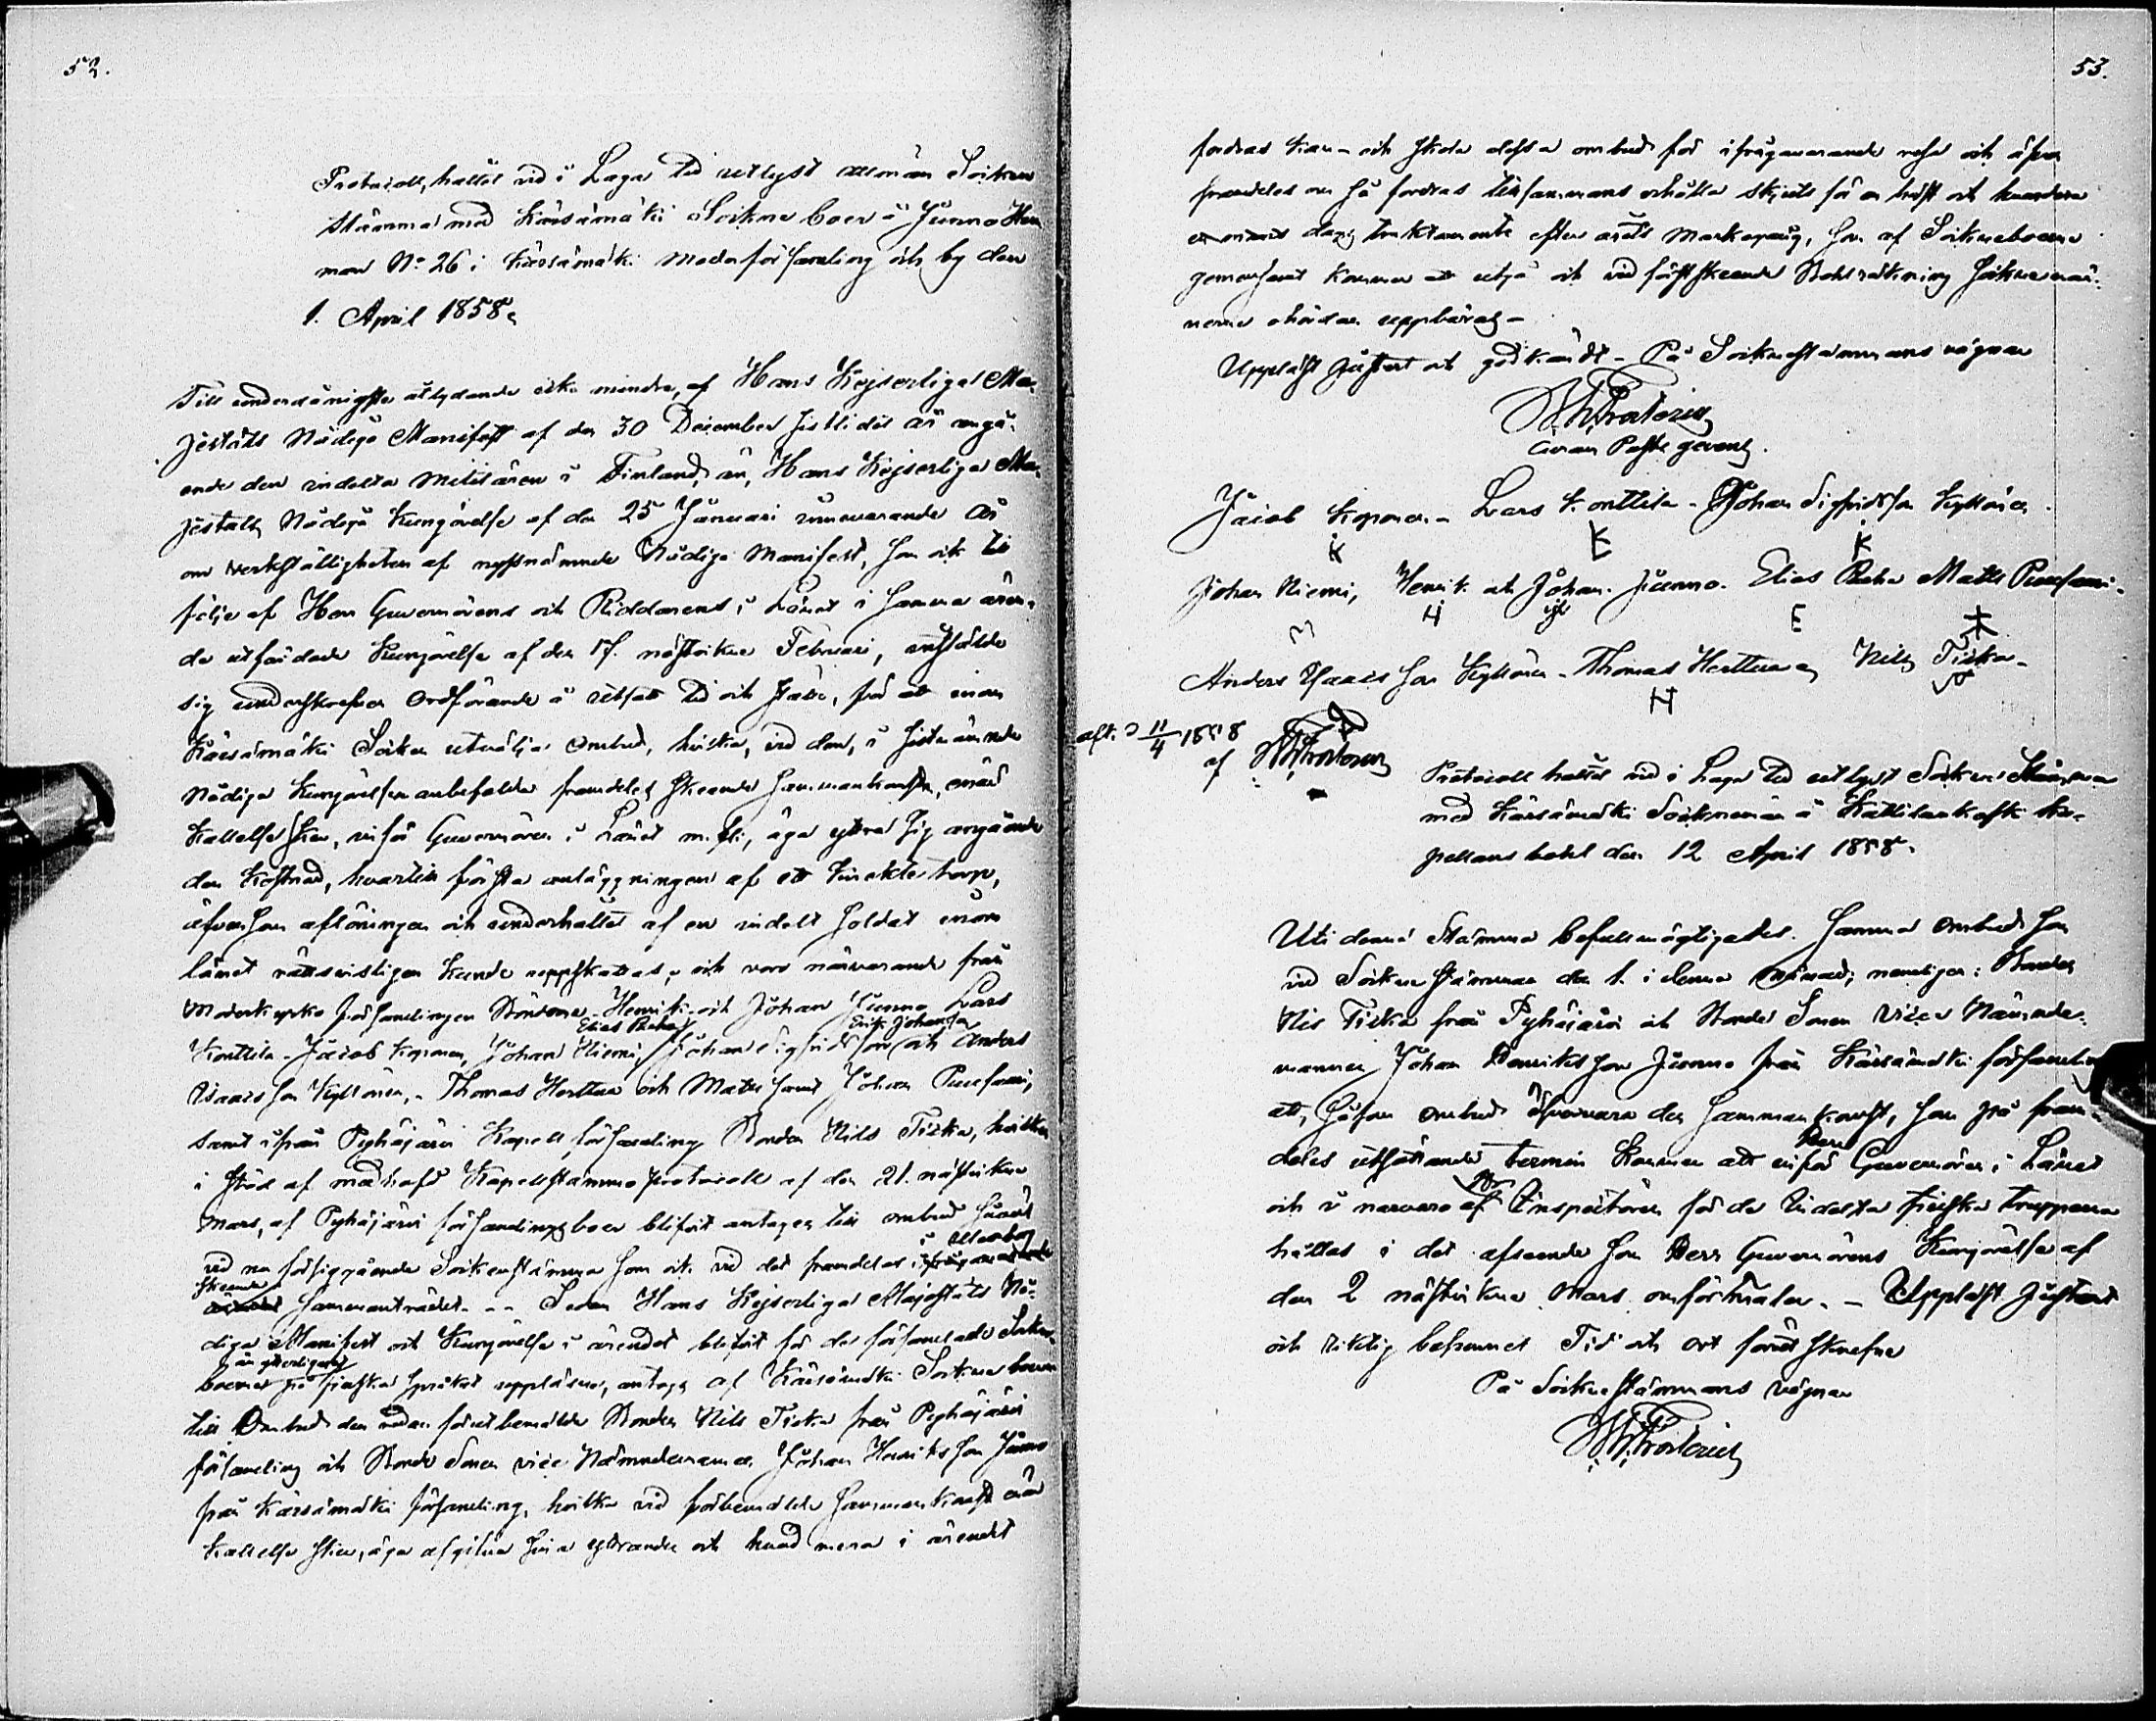 52.
Protocoll, hållit vid i Laga tid utlyst allmän Sockne
stämma med Kärsämäki Sockne boer å Junno Hem
man No 26 i Kärsämäki moderförsamling och by den
1. April 1858.
Till underdånigste åtlydande icke mindre, af Hans Kejserliga Ma-
jestäts Nådiga Manifest af den 30 December sistlidit år angå-
ende den indelta militären i Finland, än, Hans Kejserliga Ma-
jestäts Nådiga Kungörelse af den 25 Januari innevarande år
om verkställigheten af nyssnämnde Nådiga Manifest, som ock till
följe af Herr Guvernörens och Riddarens i Länet i samma ären-
de utfärdade Kungörelse af den 17. nästvikne Februari, inställde
sig underskrefven Ordförande å utsatt tid och ställe, för att inom
Kärsämäki Socken utvälja Ombud, hvilka, vid den, i sistnämnde
Nådiga Kungörelsen anbefalde framdeles skeende sammankomsten, enär
Kallelse sker, inför Guvernören i Länet m. fl., äga yttra sig angående
den Kostnad, hvartill första anläggningen af ett knektetorp,
äfvensom aflöningen och underhållet af en indelt soldat inom
länet rättvisligen kunde uppskattas, och voro närvarande från
Moderkyrko församlingen Bönderne Henrik och Johan Junno Lars
Elias Ruha Erik Johansson
Konttila - Jacob Koponen, Johan Niemi, Johan Sigfridsson och Anders
Isaacsson Kyllönen, - Thomas Herttua och Matts samt Johan Puusaari,
samt ifrån Pyhäjärvi Kapell församling Bonden Nils Tiska, hvilken
i stöd af medhafd Kapellstämmo protocoll af den 21. nästvikne
Mars, af Pyhäjärvi församlingsboer blifvit antagen till ombud såväl
i Uleåborg
vid nu försiggående Sockenstämma som ock vid det framdeles ifrågavarande
skeende
sammanträdet. -- Sedan Hans Kejserliga Majestäts Nå-
diga Manifest och Kungörelse i ärendet blifvit för de församlade Sockne
än ytterligare
boerne på finska språket uppläsne, antogs af Kärsämäki Sockne boerne
till Ombud den redan förutbemälde Bonden Nils Tiska från Pyhäjärvi
församling och Bonde Sonen vice Nämndemannen Johan Henriksson Junno
från Kärsämäki församling, hvilka vid förbemälde sammankomst enär
Kallelse sker, äga afgifva sina yttranden och hvad mera i ärendet
53.
fordras kan - och skola dessa ombud för ifrågavarande resa och äfven
framdeles om så fordras tillsammans erhålla skjuts för en häst och hvardera
dagtraktamente efter årets Markegång, som af Socknebоerne
gemensamt kommer att utgå och vid först skeende Stolsräkning Socknemän-
nerne ohördan uppbäras -
Uppläst justert och godkändt - På Sockenstämmans vägnar
Jacob Koponen - Lars Konttila - Johan Sigfridsson Kyllönen.
K K K
Johan Niemi, Henrik och Johan Junno. Elias Ruha Matts Puusaari.
H E
Anders Isaacsson Kyllönen - Thomas Herttua, Nils Tiska -
H
afk. d 11/4 1858
af
Protocoll hållet vid i Laga tid utlyst Socken Stämma
med Kärsämäki Socknemän å Kattilankoski ka-
pellans bohl den 12 April 1858.
Uti denna Stämma befullmägtigades samma ombud som
vid Sockne stämman den 1. i denna månad; nemligen: Bonden
Nils Tiska från Pyhäjärvi och Bonde Sonen Vice Nämnde-
mannen Johan Henriksson Junno från Kärsämäki församling
att, såsom ombud öfvervara den sammankomst, som på fram-
Herr
deles utsättande termin kommer att inför Guvernören i Länet
och i närvaro af Inspectören för de Indelta finska trupperna
hållas i det afseende som Herr Guvernörens Kungörelse af
den 2 nästvikne Mars omförmäler. - Uppläst justert
och riktig befunnet Tid och ort förut skrefne
På Sockenstämmans vägnar